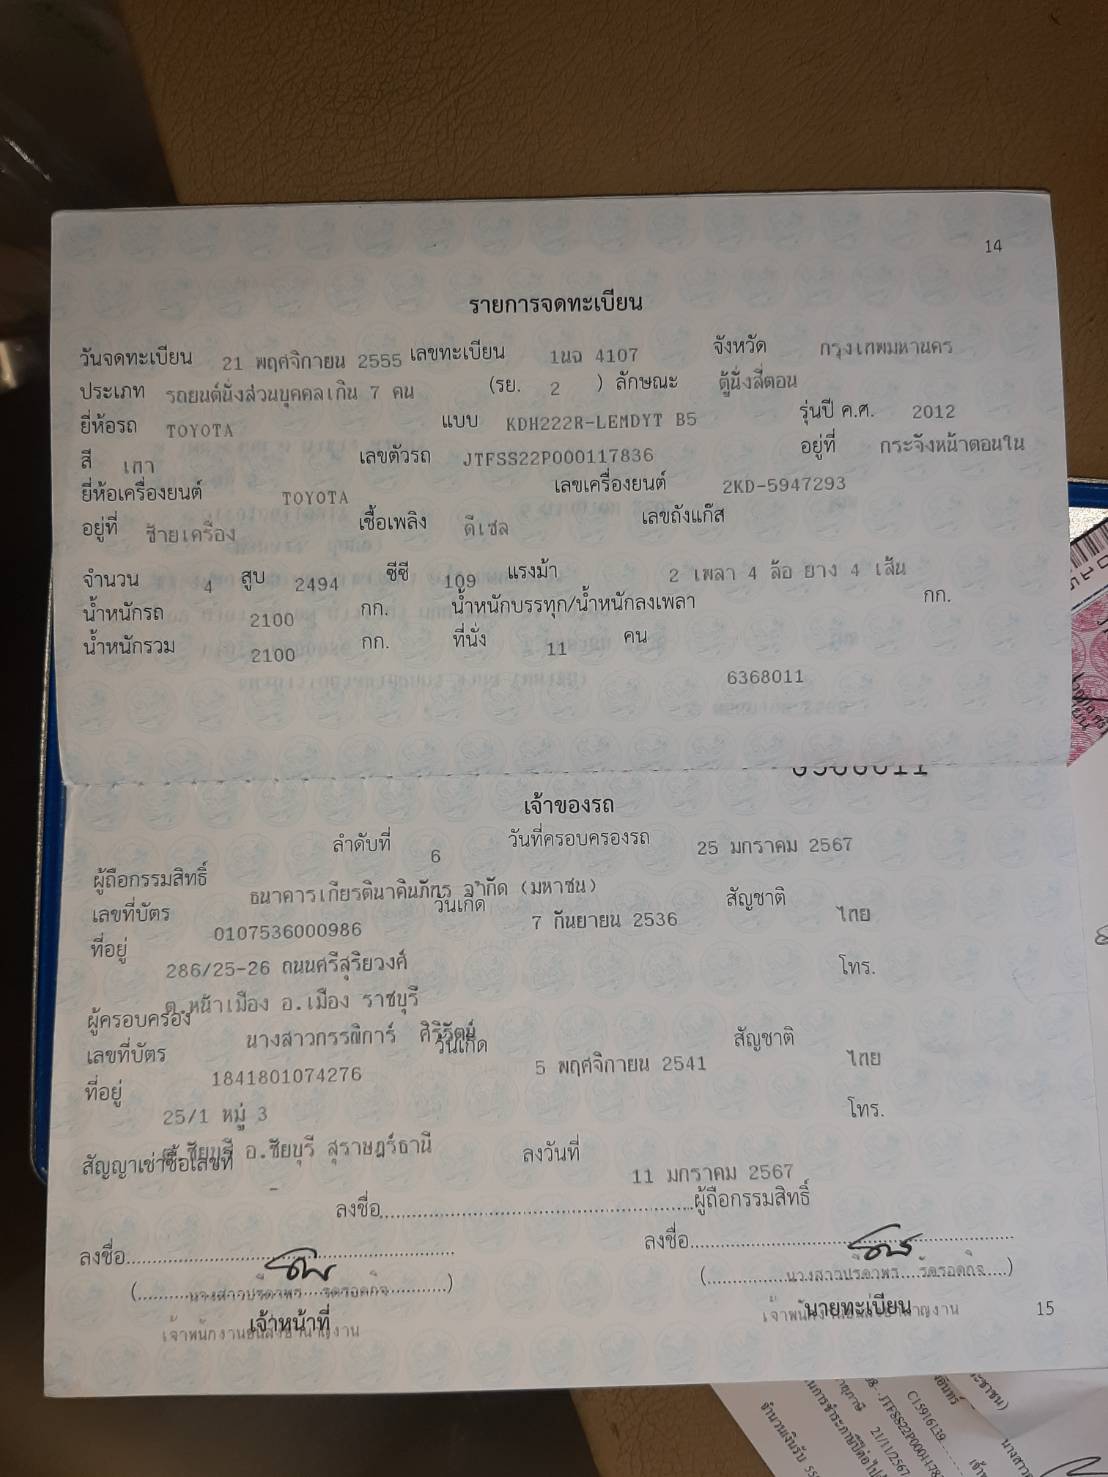 14
รายการจดทะเบียน
วันจดทะเบียน 21 พฤศจิกายน 2555 เลขทะเบียน 1นฉ 4107 จังหวัด กรุงเทพมหานคร
ประเภท รถยนต์นั่งส่วนบุคคลเกิน 7 คน (รย. 2 ) ลักษณะ ตู้นั่งสี่ตอน
ยี่ห้อรถ TOYOTA แบบ KDH222R-LEMDYT B5 รุ่นปี ค.ศ. 2012
สี เทา เลขตัวรถ JTFSS22P000117836 อยู่ที่ กระจังหน้าตอนใน
ยี่ห้อเครื่องยนต์ TOYOTA เลขเครื่องยนต์ 2KD-5947293
อยู่ที่ ซ้ายเครื่อง เชื้อเพลิง ดีเซล เลขถังแก๊ส
จำนวน 4 สูบ 2494 ซีซี 109 แรงม้า 2 เพลา 4 ล้อ ยาง 4 เส้น
น้ำหนักรถ 2100 กก. น้ำหนักบรรทุก/น้ำหนักลงเพลา กก.
น้ำหนักรวม 2100 กก. ที่นั่ง 11 คน
6368011
เจ้าของรถ
ลำดับที่ 6 วันที่ครอบครองรถ 25 มกราคม 2567
ผู้ถือกรรมสิทธิ์ ธนาคารเกียรตินาคินภัทร จำกัด (มหาชน)
เลขที่บัตร 0107536000986 วันเกิด 7 กันยายน 2536 สัญชาติ ไทย
ที่อยู่ 286/25-26 ถนนศรีสุริยวงศ์ โทร.
ต.หน้าเมือง อ.เมือง ราชบุรี
ผู้ครอบครอง นางสาวกรรณิการ์ ศิริรัตน์
เลขที่บัตร 1841801074276 วันเกิด 5 พฤศจิกายน 2541 สัญชาติ ไทย
ที่อยู่ 25/1 หมู่ 3 โทร.
ต.ชัยบุรี อ.ชัยบุรี สุราษฎร์ธานี
สัญญาเช่าซื้อเลขที่ - ลงวันที่ 11 มกราคม 2567
ลงชื่อ ผู้ถือกรรมสิทธิ์
ลงชื่อ ลงชื่อ
เจ้าหน้าที่ นายทะเบียน
15